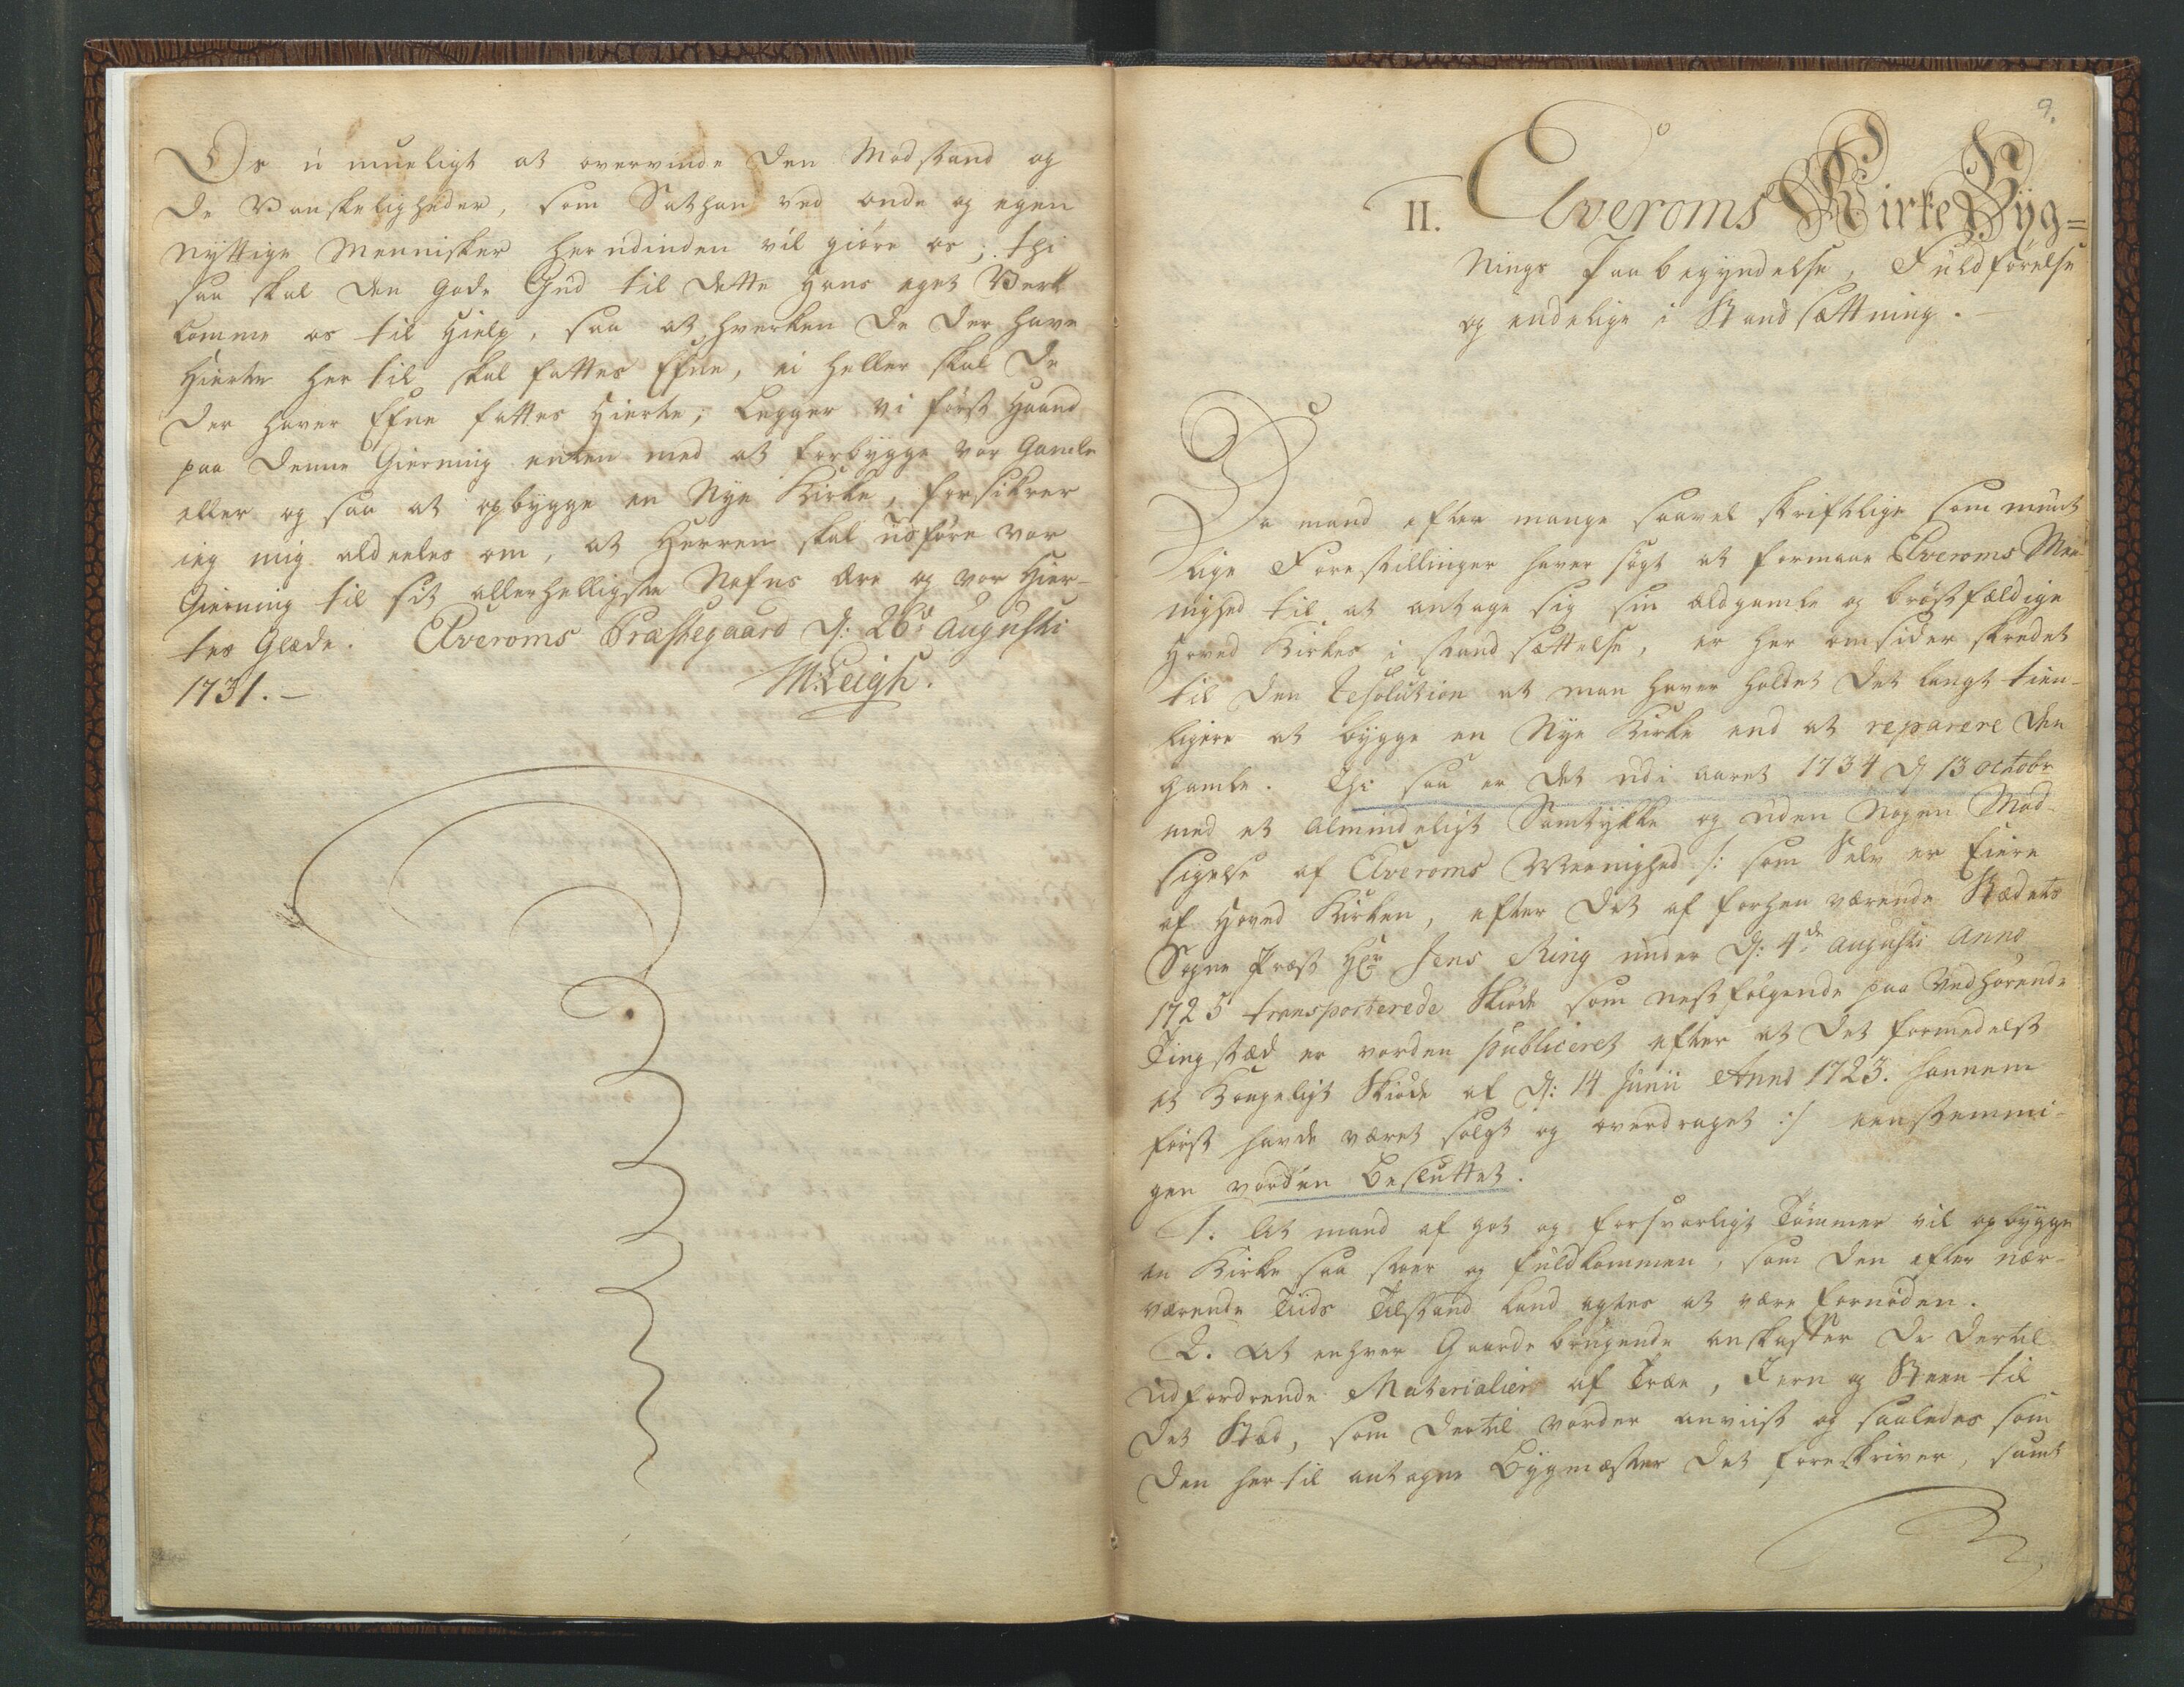 Os u mueligt at overvinde den Modstand og
de Vanskeligheder, som Sathan ved onde og egen
nyttige Mennisker herudinden vil giøre os; thi
saa skal den gode Gud til dette hans eget Verk
komme os til Hielp, saa at hverken de der have
Hierte her til skal fattes Efne, ei heller skal de
der haver Efne fattes Hierte; Legger vi først Haand
paa denne Gierning enten med at forbygge vor Gamle
eller og saa at opbygge en Nye Kirke, forsikrer
ieg mig aldeeles om, at Herren skal udføre vor
Gierning til sit allerhelligste Nafns ære og vor Hier-
tes Glæde. Elveroms Præstegaard d: 26de Augusti
1731.-
M: Leigh.
9.
II. Elveroms Kirke Byg=
nings Paabegyndelse, Fuldførelse
og endelige i Stand sættning.
Da mand efter mange saavel skriftlige som mundt
lige Forestillinger haver søgt at formaae Elveroms Mee-
nighed til at antage sig sin ældgamle og brøstfældige
Hoved Kirkes i stand sættelse, er her omsider skredet
til den Resolution at man haver holdet det langt tien-
ligere at bygge en Nye Kirke end at reparere den
gamle. Thi saa er det udi aaret 1734 d 13 octobr
med et Almindeligt Samtykke og uden Nogen Mod-
sigelse af Elveroms Meenighed /: som Selv er Eiere
af Hoved Kirken, efter det af forhen værende Stædets
Sogne Præst Hr Jens Ring under d: 4de Augusti Anno
1725 transporterede Skiøde som nestfølgende paa Vedhørende
Tingstæd er vorden publiceret efter at det formedelst
et Kongeligt Skiøde af d: 14 Junii Anno 1723. hannem
først havde været solgt og overdraget :/ eenstemmi-
gen vorden Besluttet.
1. At mand af got og forsvarligt Tømmer vil opbygge
en Kirke saa stoer og fuldkommen, som den efter nær-
værende Tiids Tilstand kand agtes at være fornøden.
2. At enhver Gaardebrugende anskaffer de dertil
udfordrende Materialier af Træe, Jern og Steen til
det Stæd, som dertil vorder anviist og saaledes som
den hertil antagne Bygmæster det foreskriver, samt